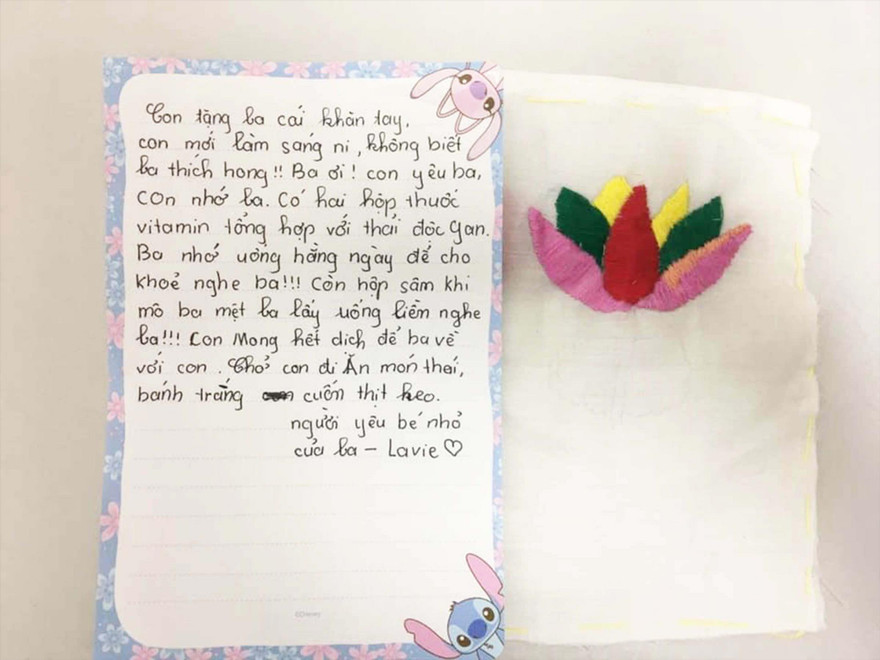 Con tặng ba cái khăn tay,
con mới làm sáng ni, không biết
ba thích hong!! Ba ơi! con yêu ba,
con nhớ ba. Có hai hộp thuốc
vitamin tổng hợp với thải độc gan.
Ba nhớ uống hằng ngày để cho
khoẻ nghe ba!!! Còn hộp sâm khi
mô ba mệt ba lấy uống liền nghe
ba!!! Con Mong hết dịch để ba về
với con. Chở con đi Ăn món thái,
bánh tráng cuốn thịt heo.
người yêu bé nhỏ
của ba – Lavie ♡
©Disney